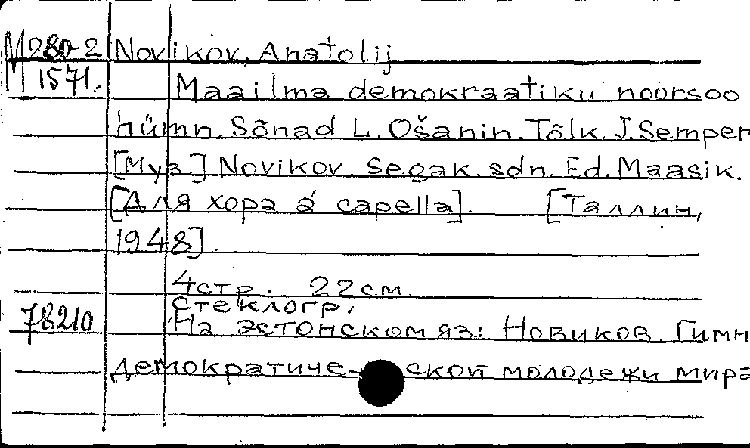 М280-2 Novikov, Anatolij
1571. Maailma demokraatiku noorsoo
hümn. Sõnad L. Ošanin. Tõlk. J. Semper
[Муз.] Novikov. Segak. sdn. Ed. Maasik.
[Для хора á capella]. [Таллин,
1948].
4 стр. 22 см.
Стеклогр.
78210 На эстонском яз: Новиков. Гимн
демократиче-ской молодежи мира